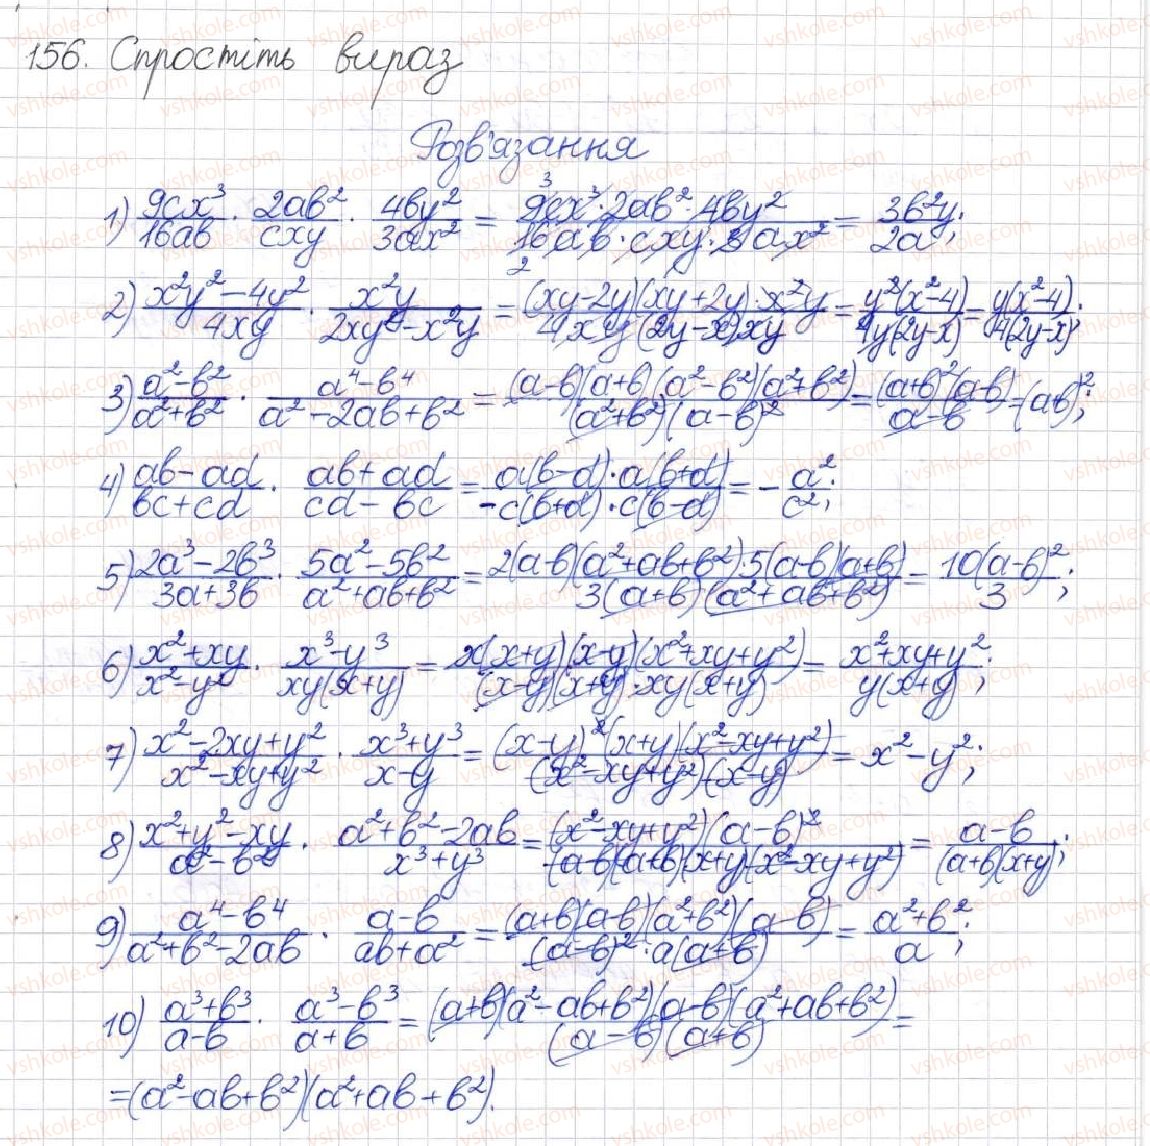 156. Спростіть вираз
Розв'язання
1) 9cx³/16ab · 2ab²/cxy · 4by²/3ax² = 9cx³·2ab²·4by²/16ab·cxy·3ax² = 3b²y/2a;
2) x²y²-4y²/4xy · x²y/2xy²-x²y = (xy-2y)(xy+2y)·x²y/4xy(2y-x)xy = y²(x²-4)/4y(2y-x) = y(x²-4)/4(2y-x);
3) a²-b²/a²+b² · a⁴-b⁴/a²-2ab+b² = (a-b)(a+b)(a²-b²)(a²+b²)/(a²+b²)(a-b)² = (a+b)²(a-b)/a-b = (ab)²;
4) ab-ad/bc+cd · ab+ad/cd-bc = a(b-d)·a(b+d)/-c(b+d)·c(b-d) = -a²/c²;
5) 2a³-2b³/3a+3b · 5a²-5b²/a²+ab+b² = 2(a-b)(a²+ab+b²)·5(a-b)(a+b)/3(a+b)(a²+ab+b²) = 10(a-b)²/3;
6) x²+xy/x²-y² · x³-y³/xy(x+y) = x(x+y)(x-y)(x²+xy+y²)/(x-y)(x+y)·xy(x+y) = x²+xy+y²/y(x+y);
7) x²-2xy+y²/x²-xy+y² · x³+y³/x-y = (x-y)²(x+y)(x²-xy+y²)/(x²-xy+y²)(x-y) = x²-y²;
8) x²+y²-xy/a²-b² · a²+b²-2ab/x³+y³ = (x²-xy+y²)(a-b)²/(a-b)(a+b)(x+y)(x²-xy+y²) = a-b/(a+b)(x+y);
9) a⁴-b⁴/a²+b²-2ab · a-b/ab+a² = (a+b)(a-b)(a²+b²)(a-b)/(a-b)²·a(a+b) = a²+b²/a;
10) a³+b³/a-b · a³-b³/a+b = (a+b)(a²-ab+b²)(a-b)(a²+ab+b²)/(a-b)(a+b) =
=(a²-ab+b²)(a²+ab+b²).